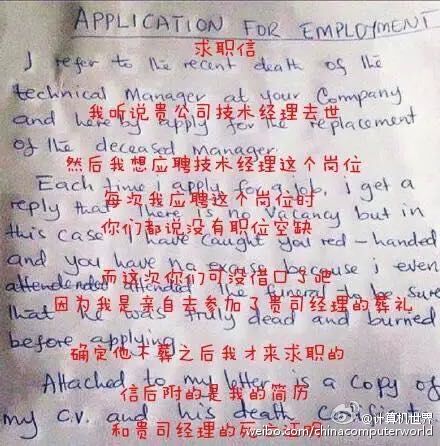 APPLICATION FOR EMPLOYMENT
求职信
I refer to the recent death of the
technical Manager at your Company
我听说贵公司技术经理去世
and hereby apply for the replacement
of the deceased manager.
然后我想应聘技术经理这个岗位
Each time i apply for a job, i get a
每次我应聘这个岗位时
reply that there is no vacancy but in
你们都说没有职位空缺
this case i have caught you red-handed
and you have no excuse because i even
而这次你们可没借口了吧
attended the funeral to be sure
因为我是亲自去参加了贵司经理的葬礼
that he was truly dead and buried
before applying.
确定他下葬之后我才来求职的
Attached to my letter is a copy of
信后附的是我的简历
my C.V. and his death
和贵司经理的死亡证明
@计算机世界
weibo.com/chinacomputerworld